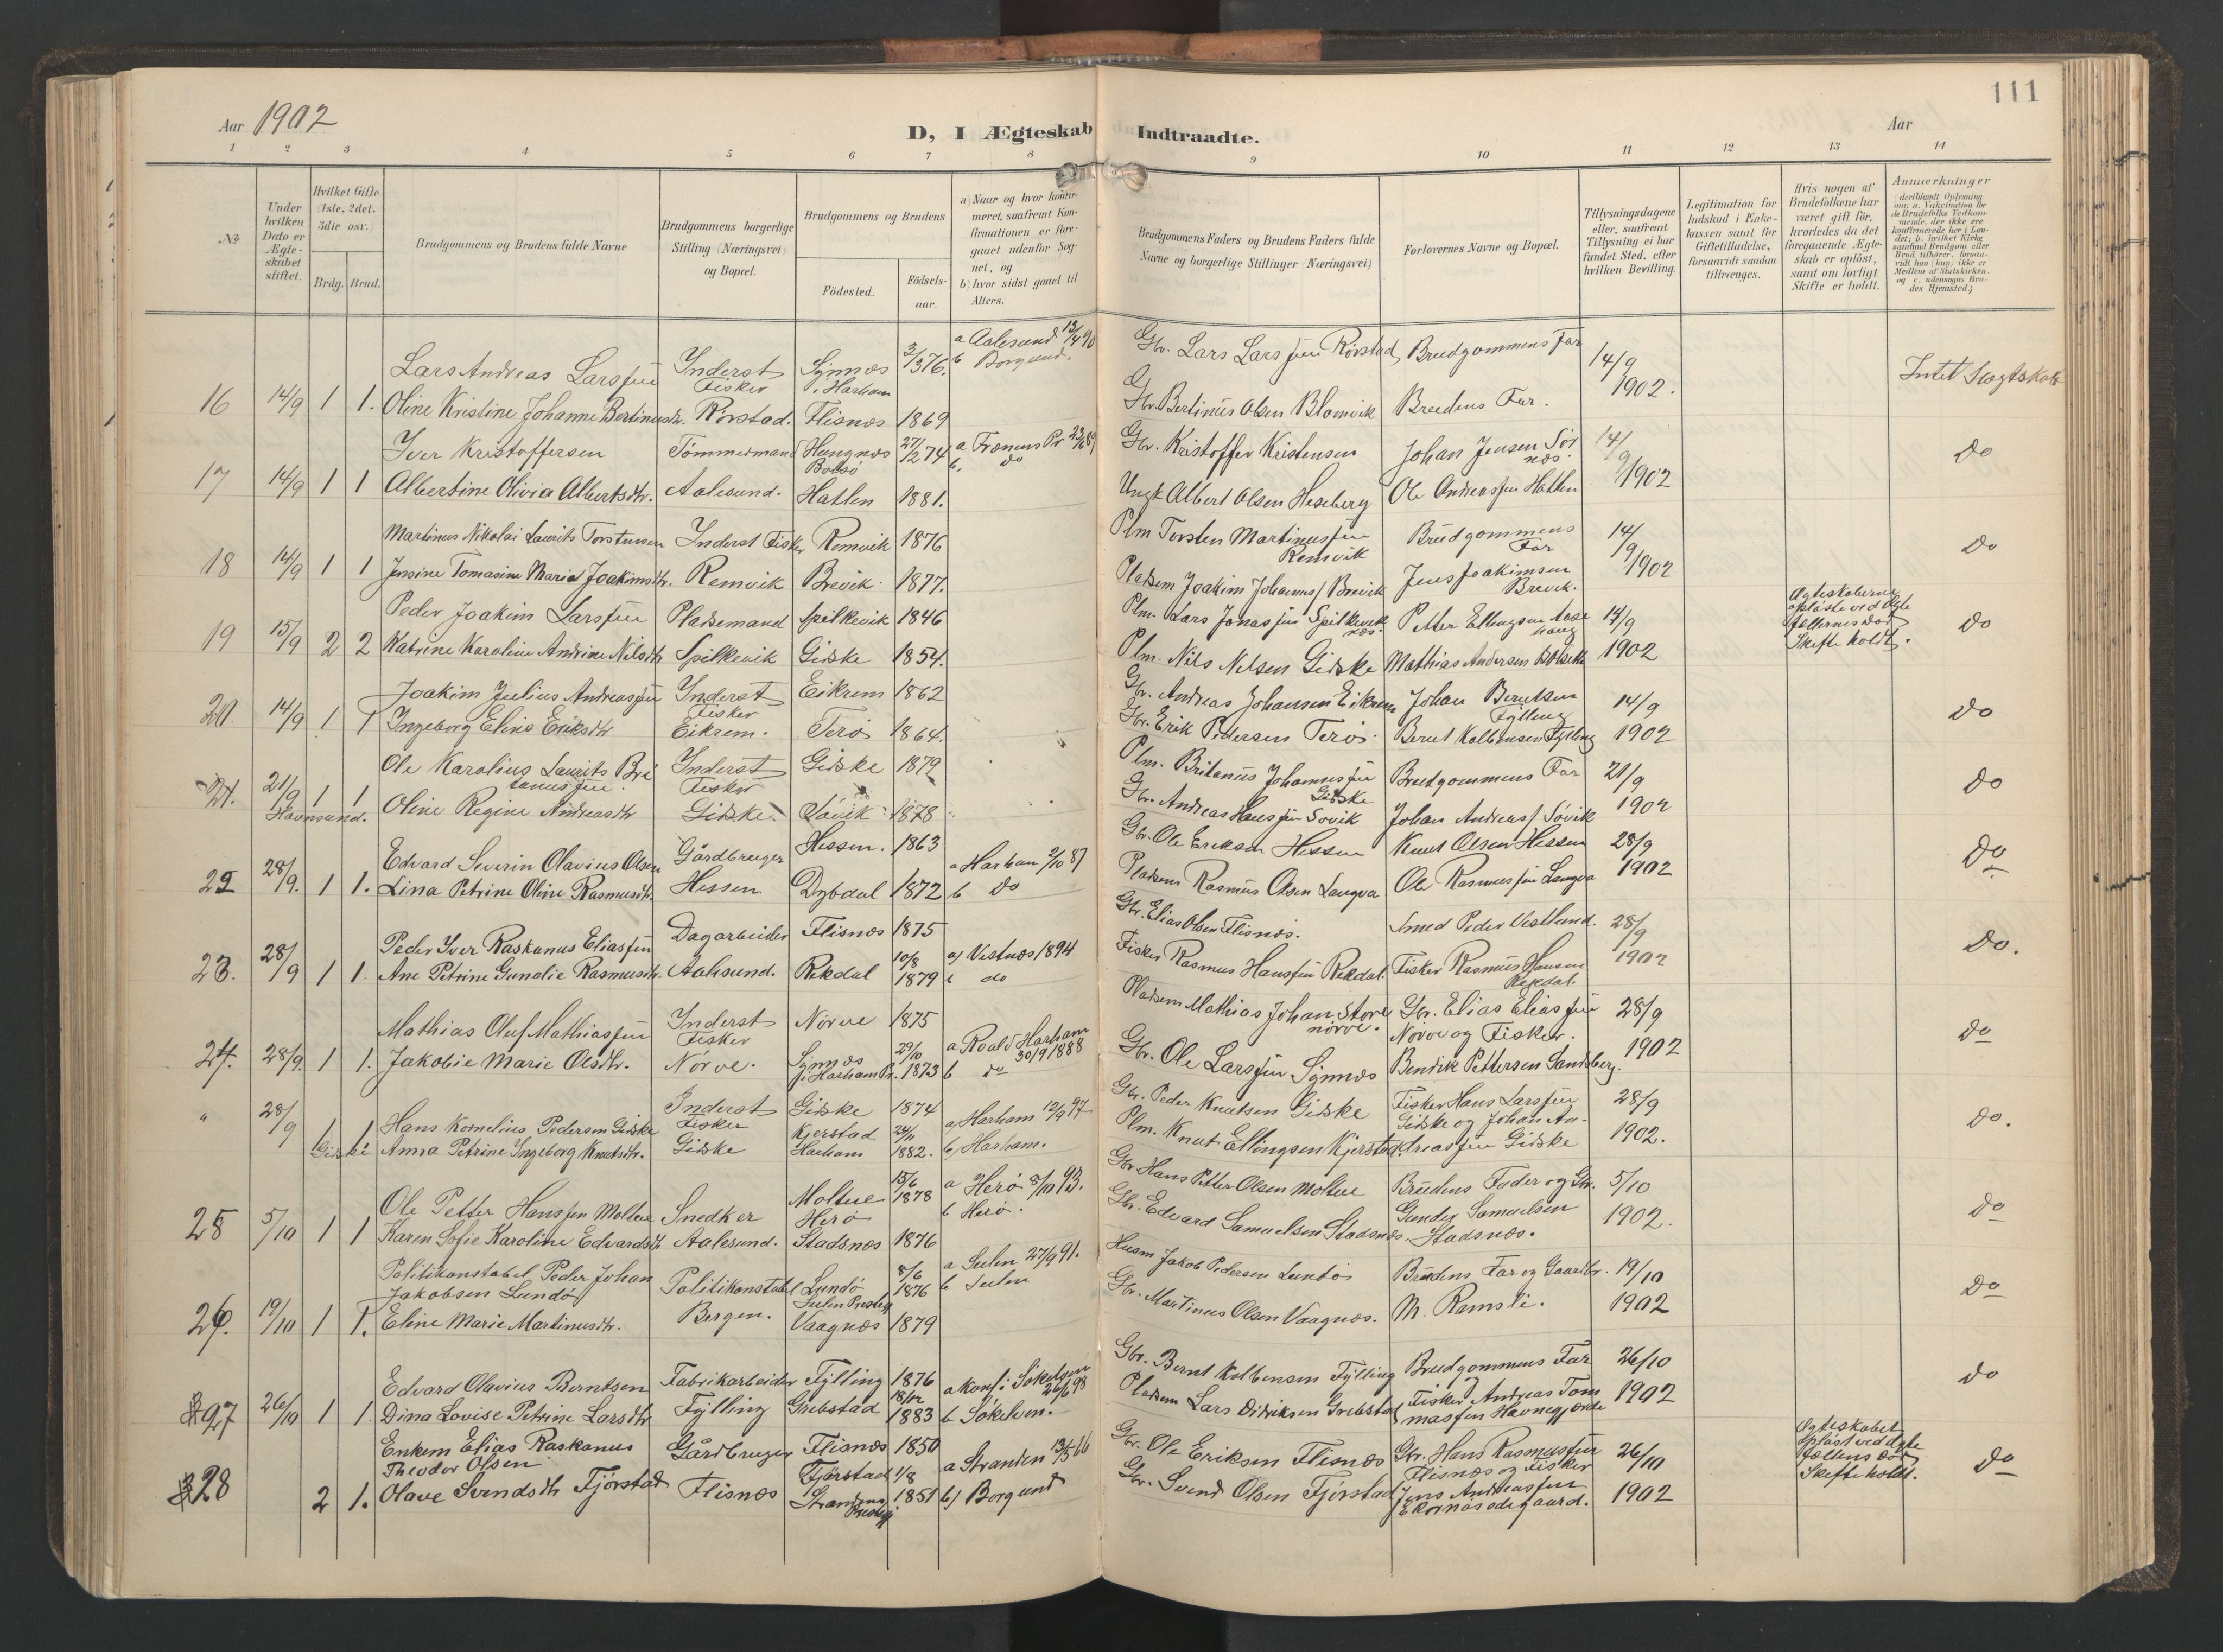 111
Aar 1902
D, I Ægteskab Indtraadte.
Aar
1 2 3 4 5 6 7 8 9 10 11 12 13 14
No
Under hvilken Dato er Ægteskabet stiftet.
Hvilket Gifte (1ste, 2det, 3die osv.)
Brdg. Brud.
Brudgommens og Brudens fulde Navne
Brudgommens borgerlige Stilling (Næringsvei) og Bopæl.
Brudgommens og Brudens
Födested.
Födsels-aar.
a) Naar og hvor konfirmeret, saafremt Konfirmationen er foregaaet udenfor Sognet, og
b) hvor sidst gaaet til Alters.
Brudgommens Faders og Brudens Faders fulde Navne og borgerlige Stillinger (Næringsvei)
Forlovernes Navne og Bopæl.
Tillysningsdagene eller, saafremt Tillysning ei har fundet Sted, efter hvilken Bevilling.
Legitimation for Indskud i Enkekassen samt for Giftetilladelse, forsaavidt saadan tiltrænges.
Hvis nogen af Brudefolkene har været gift för, hvorledes da det foregaaende Ægteskab er oplöst, samt om lovligt Skifte er holdt.
Anmerkninger
16 14/9 1 1.
Lars Andreas Larssen Inderst Synnæs 3/3 76. a Aalesund 13/4 90 Gbr. Lars Larssen Rörstad, Brudgommens Far 14/9 Intet Slægtskab
Fisker i Harham b Borgund.
Oline Kristine Johanne Bertinusdtr. Rörstad. Flisnæs 1869 Gbr. Bertinus Olsen Blomvik Brudens Far. 1902.
17 14/9 1 1
Iver Kristoffersen Tömmermand Hungnæs 27/2 74 a Frænens Pr. Gbr. Kristoffer Kristensen Johan Jensen Sör 14/9 do
Bolsö b. do næs.
Albertine Olivia Albertsdtr. Aalesund. Hatlen 1881. Ungk Albert Olsen Hessberg Ole Andreassen Hatlen 1902
18 14/9 1 1
Martinus Nikolai Laurits Torstensen Inderst Fisker Remvik 1876 Plm Torsten Martinussen Brudgommens 14/9 do
Remvik Far
Jensine Tomasine Maria Joakimsdtr. Remvik Brevik 1877. Pladsm Joakim Johannes/ Brevik Jens Joakimsen 1902
Brevik.
19 15/9 2 2
Peder Joakim Larssen Pladsemand Spilkevik 1846 Plm. Lars Jonassen Spilkevik Petter Ellingsen Aase 14/9 Ægteskaberne oplöste ved Ægtefællernes Död Skifte holdt. do
næs. haug
Katrine Karoline Andrine Nilsdtr Spilkevik Giske 1854. Plm. Nils Nilsen Gidske Mathias Andersen 1902
20 14/9 1 1
Joakim Julius Andreassen Inderst Eikrem 1862 Gbr. Andreas Johansen Eikrem Johan Berntsen 14/9 do
Fisker Fylling
Ingeborg Eline Eriksdtr Eikrem. Terö 1864. Gbr. Erik Pedersen Terö. Bernt Kolbensen Fylling 1902
21. 21/9 1 1
Havnsund.
Ole Karolius Laurits Bri Inderst Gidske 1879 Plm. Britanius Johannessen Brudgommens Far 21/9 do
tanussen. Fisker Gidske
Oline Regine Andreasdtr Gidske. Sövik 1878 Gbr. Andreas Hanssen Sövik Johan Andreas/ Sövik 1902
22 28/9. 1 1.
Edvard Severin Olavius Olsen Gårdbruger Hessen. 1863 a Harham 2/10 87 Gbr. Ole Eriksen Hessen Knut Olsen Hessen 28/9 do
Lina Petrine Oline Rasmusdtr. Hessen Dybdal 1872 b do Pladsm Rasmus Olsen Langva Ole Rasmussen Langva 1902
23. 28/9 1 1.
Peder Iver Raskanus Eliassen Dagarbeider Flisnæs 1875 Gbr. Elias Olsen Flisnæs. Smed Peder Vestlund. 28/9 do.
Ane Petrine Gunalie Rasmusdtr. Aalesund. Rekdal 10/8 1879 a) Vestnæs 1894 Fisker Rasmus Hanssen Rekdal. Fisker Rasmus Hansen 1902
do Rekdal.
24. 28/9. 1 1.
Mathias Oluf Mathiassen Inderst Nörve 1875 Pladsem Mathias Johan. Store Gbr. Elias Eliassen 28/9 do
Fisker nörve. Nörve og Fisker.
Jakobie Marie Olsdtr. Nörve. Synnæs 29/10 a Roald Harham 30/9 1888 Gbr. Ole Larssen Synnæs Bendik Pettersen Sandsberg. 1902
i Harham Pr. 1873 b do
" 28/9 1 1
Gidske
Hans Kornelius Pedersen Gidske Inderst Gidske 1874 Gbr. Peder Knutsen Gidske Fisker Hans Larssen 28/9 do.
Fisker Gidske og Johan An-
Anna Petrine Ingeborg Knutsdtr. Gidske Kjerstad 24/11 a) Harham 12/9 97 Plm. Knut Ellingsen Kjerstad. dreassen Gidske 1902.
Harham 1882. b) Harham.
25 5/10 1 1
Ole Petter Hanssen Moltue Snedker Moltue 15/6 1878 a Herö 8/10 93. Gbr Hans Petter Olsen Moltue Brudens Fader og Gbr. 5/10 do
Herö b Herö. Gunder Samuelsen
Karen Sofie Karoline Edvardsdtr Aalesund. Stadsnæs 1876 Gbr. Edvard Samuelsen Stadsnæs. Stadsnæs. 1902.
26. 19/10 1 1.
Politikonstabel Peder Johan Politikonstabel Lundö 8/6 a Sulen 27/9 91. Husm Jakob Pedersen Lundö Brudens Far og Gaardbr. 19/10 do
Jakobsen Lundö Sulen Prestegj 1876 b Sulen
Eline Marie Martinusdtr. Bergen. Vaagnæs 1879 Gbr. Martinus Olsen Vaagnæs. M. Ramsli. 1902
27 26/10 1 1.
Edvard Olavius Berntsen Fabrikarbeider Fylling 1876 a konf. i Sökelven 26/6 98 Gbr. Bernt Kolbensen Fylling Brudgommens Far 26/10 do
og
Dina Lovise Petrine Larsdtr Fylling Grebstad 18/12 1883 b Sökelven. Pladsm Lars Didriksen Grebstad Fisker Andreas Tom 1902
massen Havnegjærde
28 2 1.
Enkem Elias Raskanus Gårdbruger Flisnæs 1850 Gbr. Ole Eriksen Flisnæs Gbr. Hans Rasmussen 26/10 Ægteskabet oplöst ved Ægtefællens Död Skifte holdt. do
Theodor Olsen Flisnæs og Fisker
Olave Svendsdtr Fjörstad Flisnæs Fjörstad 1/8 1851 a Stranden 13/5 66 Gbr. Svend Olsen Fjörstad Jens Andreassen 1902
Strandens Prestegj b) Borgund Ekornæsödegaard.